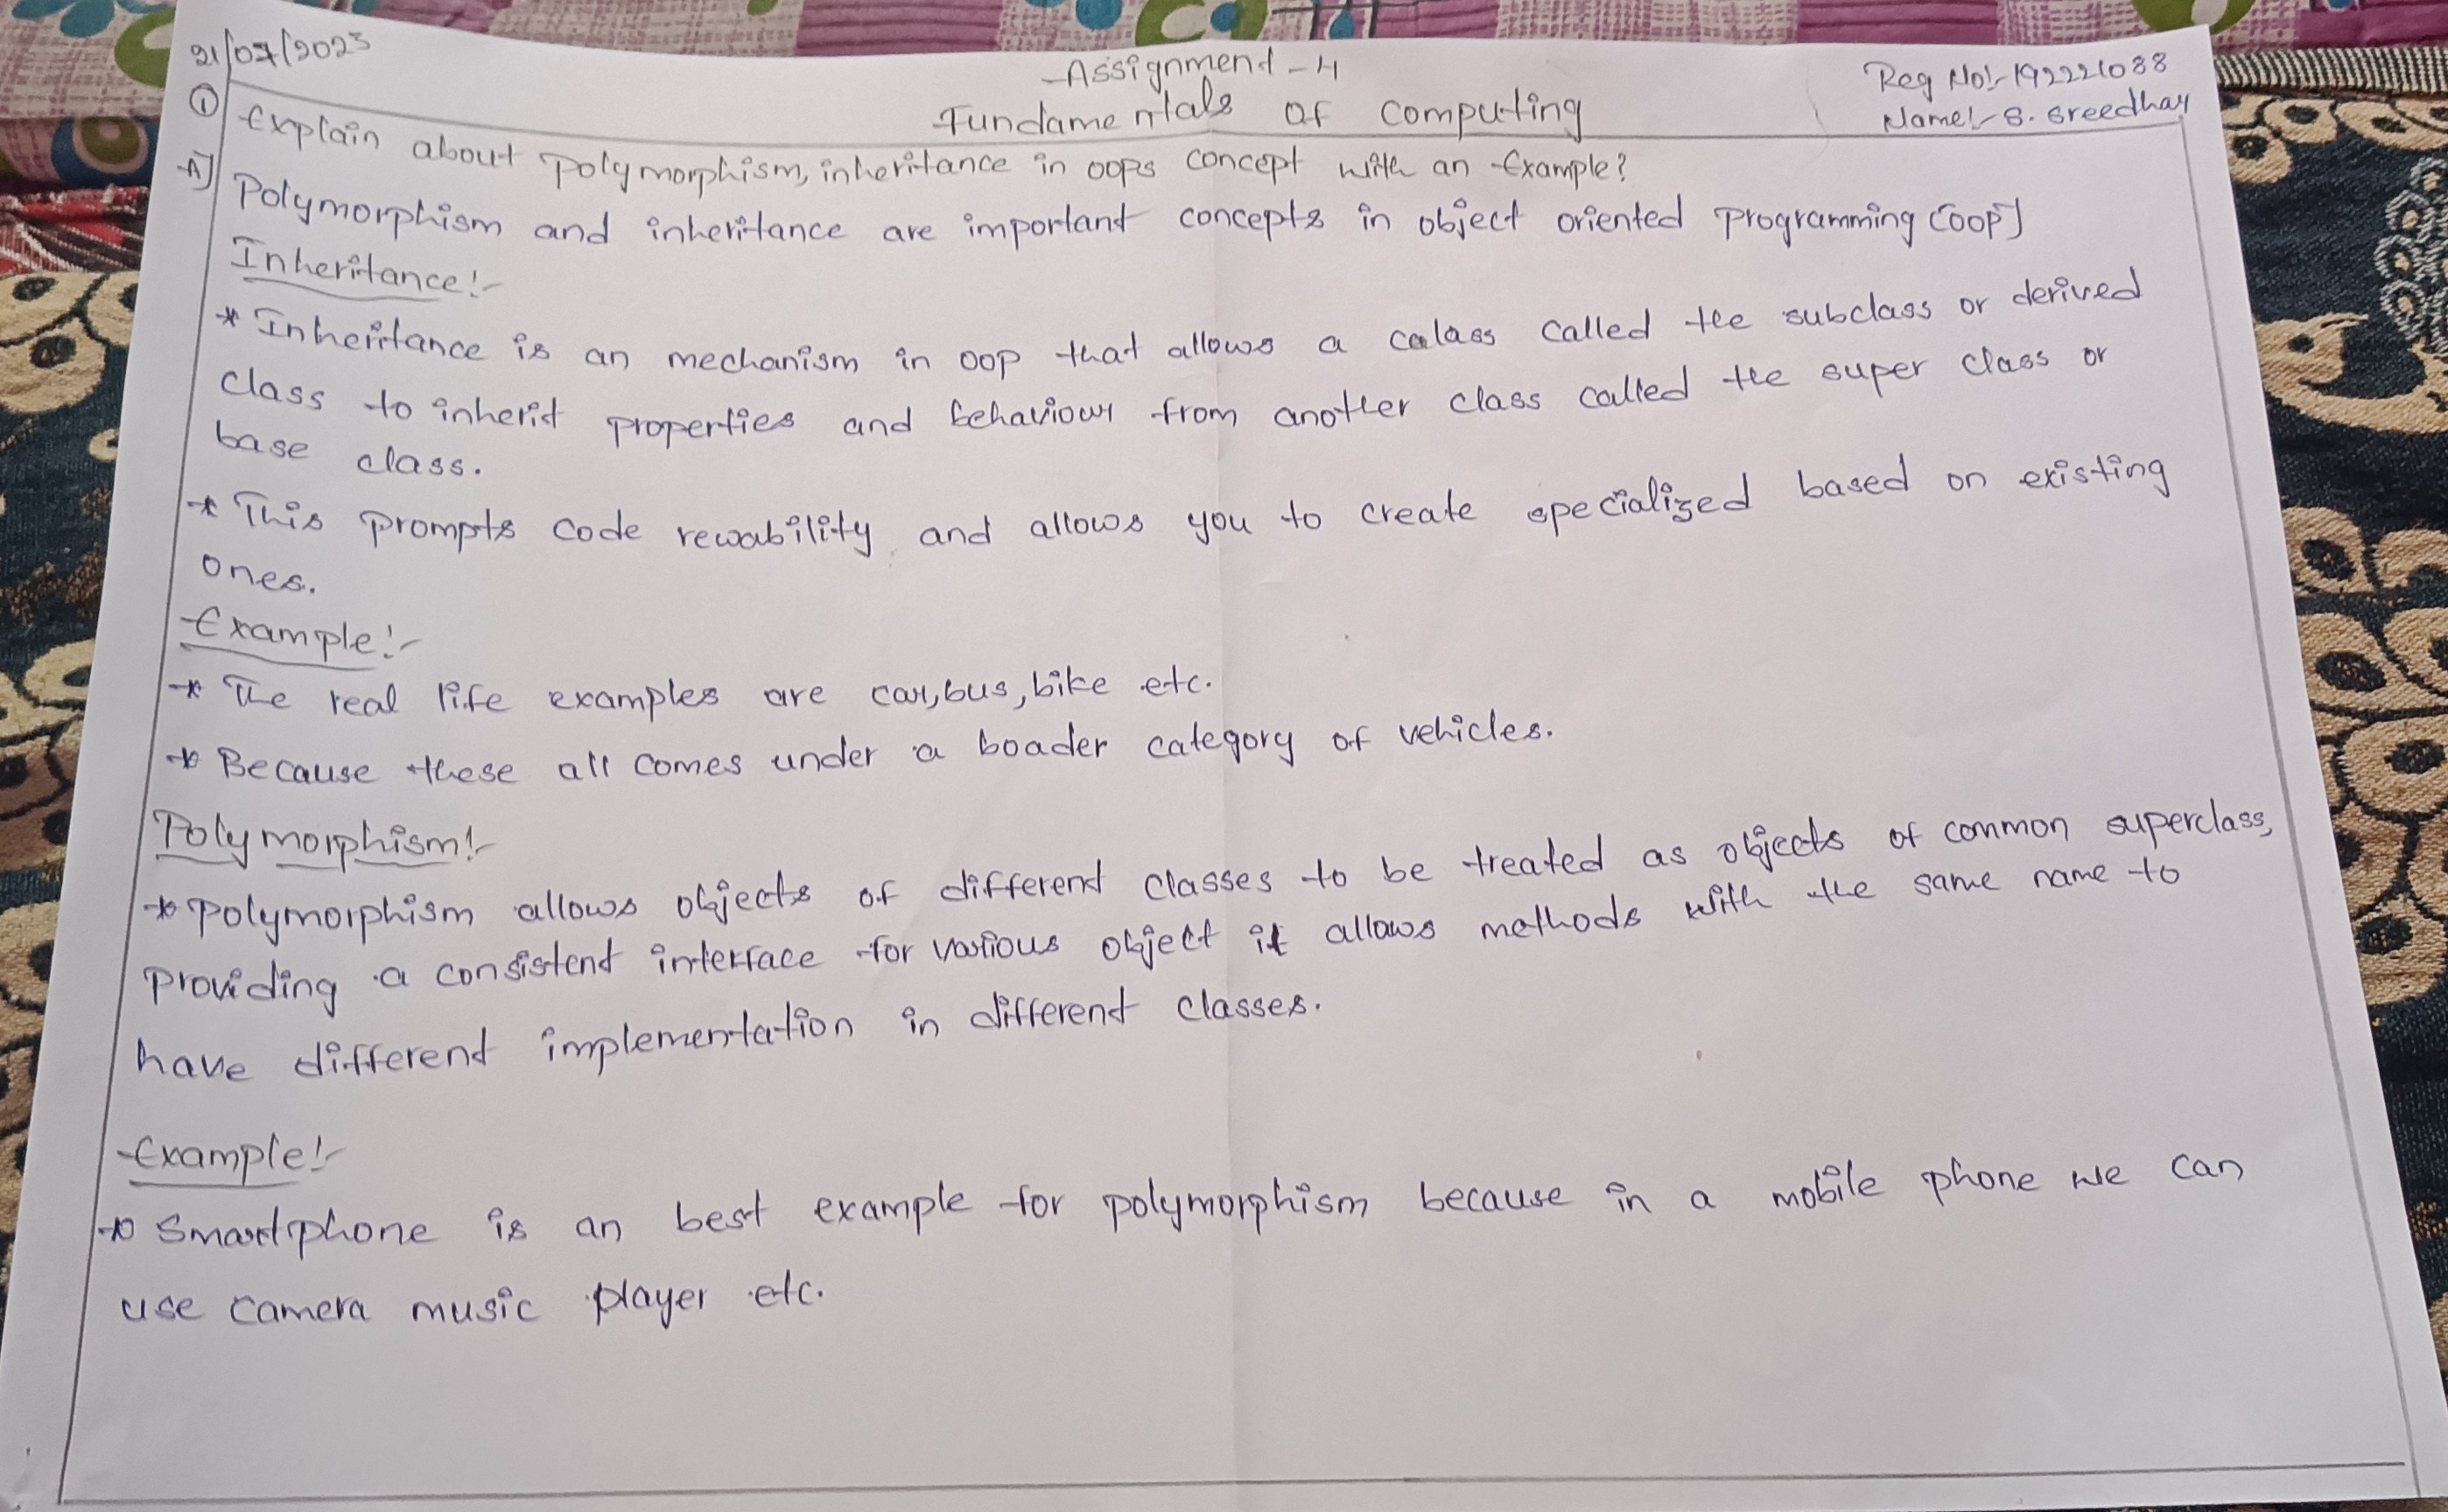 21/07/2023
Assignment-4
Fundamentals of computing
Reg No:- 192221088
Name:- S. Sreedhar
① Explain about polymorphism, inheritance in oops concept with an Example?
A] Polymorphism and inheritance are important concepts in object oriented programming [OOP]
Inheritance:-
* Inheritance is an mechanism in oop that allows a calass called the subclass or derived
class to inherit properties and behaviour from another class called the super class or
base class.
* This prompts code reusability and allows you to create specialized based on existing
ones.
Example:-
* The real life examples are car, bus, bike etc.
* Because these all comes under a boader category of vehicles.
Polymorphism:-
* Polymorphism allows objects of different classes to be treated as objects of common superclass,
providing a consistent interface for various object it allows methods with the same name to
have different implementation in different classes.
Example:-
* Smartphone is an best example for polymorphism because in a mobile phone we can
use camera music player etc.